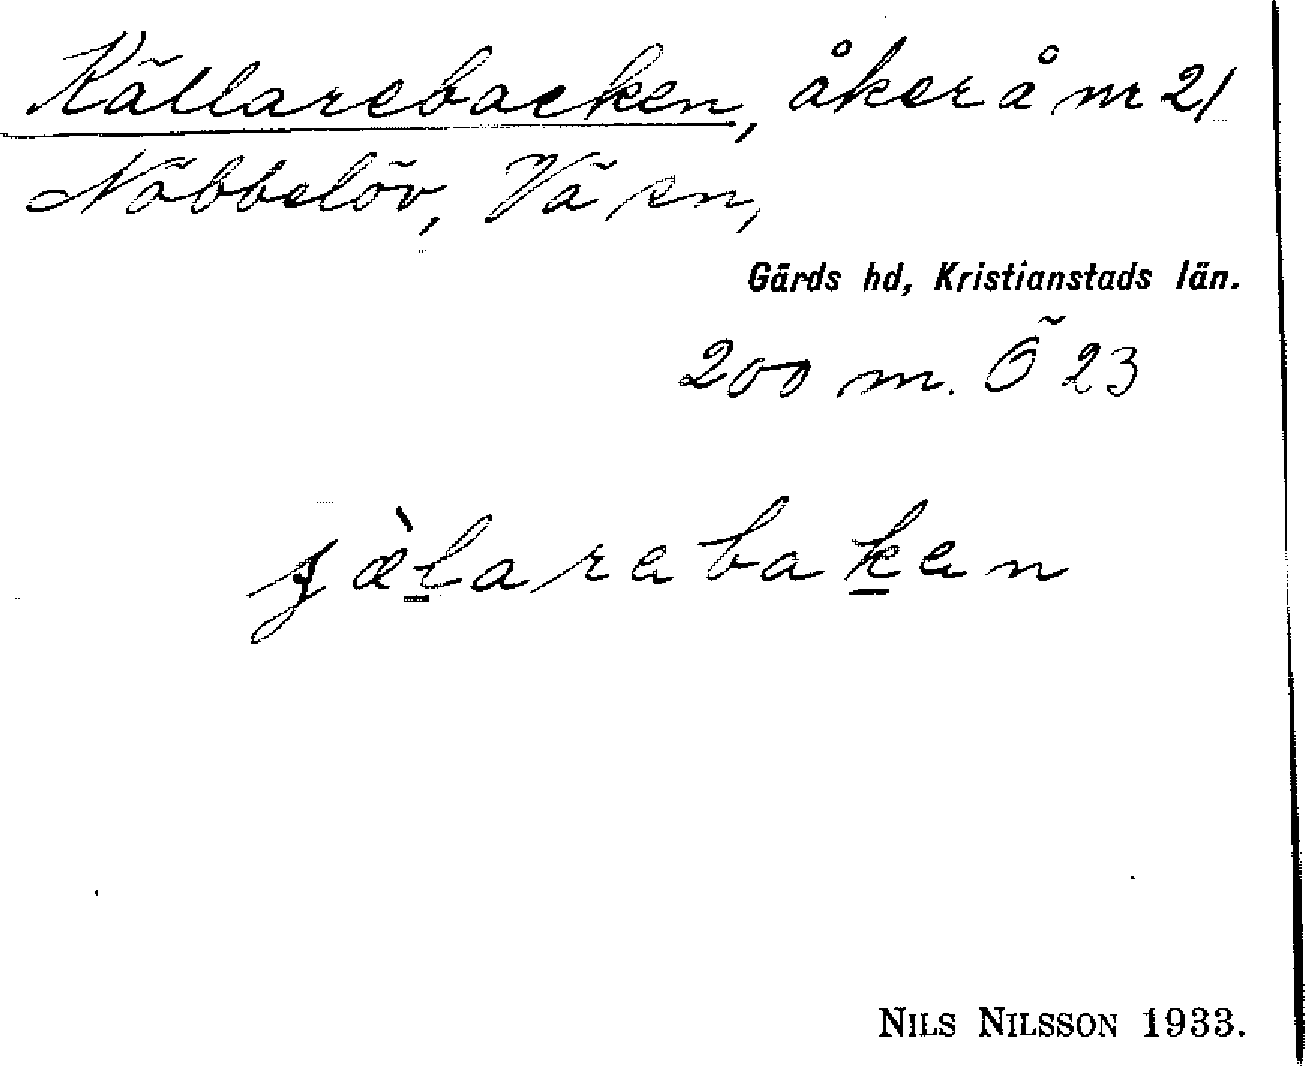 Källarebacken, åker å nr 21
Näbbelöv, Vä sn,
Gärds hd, Kristianstads län.
200 m. Ö 23
ʂæ̀larebaken
NILS NILSSON 1933.